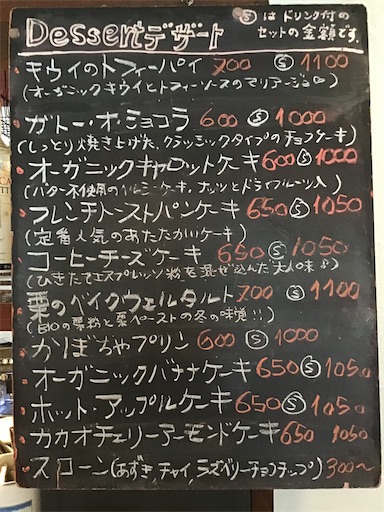 Dessertデザート
Ⓢは ドリンク付の
セットの金額です。
キウイのトフィーパイ 700 Ⓢ 1100
(オーガニックキウイとトフィーソースのマリアージュ♡)
ガトー・オ・ショコラ 600 Ⓢ 1000
(しっとり焼き上げた、クラッシックタイプのチョコケーキ)
オーガニックキャロットケーキ 600 Ⓢ 1000
(バター不使用のヘルシーケーキ。ナッツとドライフルーツ入)
フレンチトーストパンケーキ 650 Ⓢ 1050
(定番人気のあたたかいケーキ)
コーヒーチーズケーキ 650 Ⓢ 1050
(ひきたてエスプレッソ粉を混ぜ込んだ大人味♪)
栗のベイクウェルタルト 700 Ⓢ 1100
(の栗粉と栗ペーストの冬の味覚!!)
かぼちゃプリン 600 Ⓢ 1000
オーガニックバナナケーキ 650 Ⓢ 1050
ホット・アップルケーキ 650 Ⓢ 1050
カカオチェリーアーモンドケーキ 650 1050
スコーン(あずき、チャイ、ラズベリーチョコチップ) 300〜